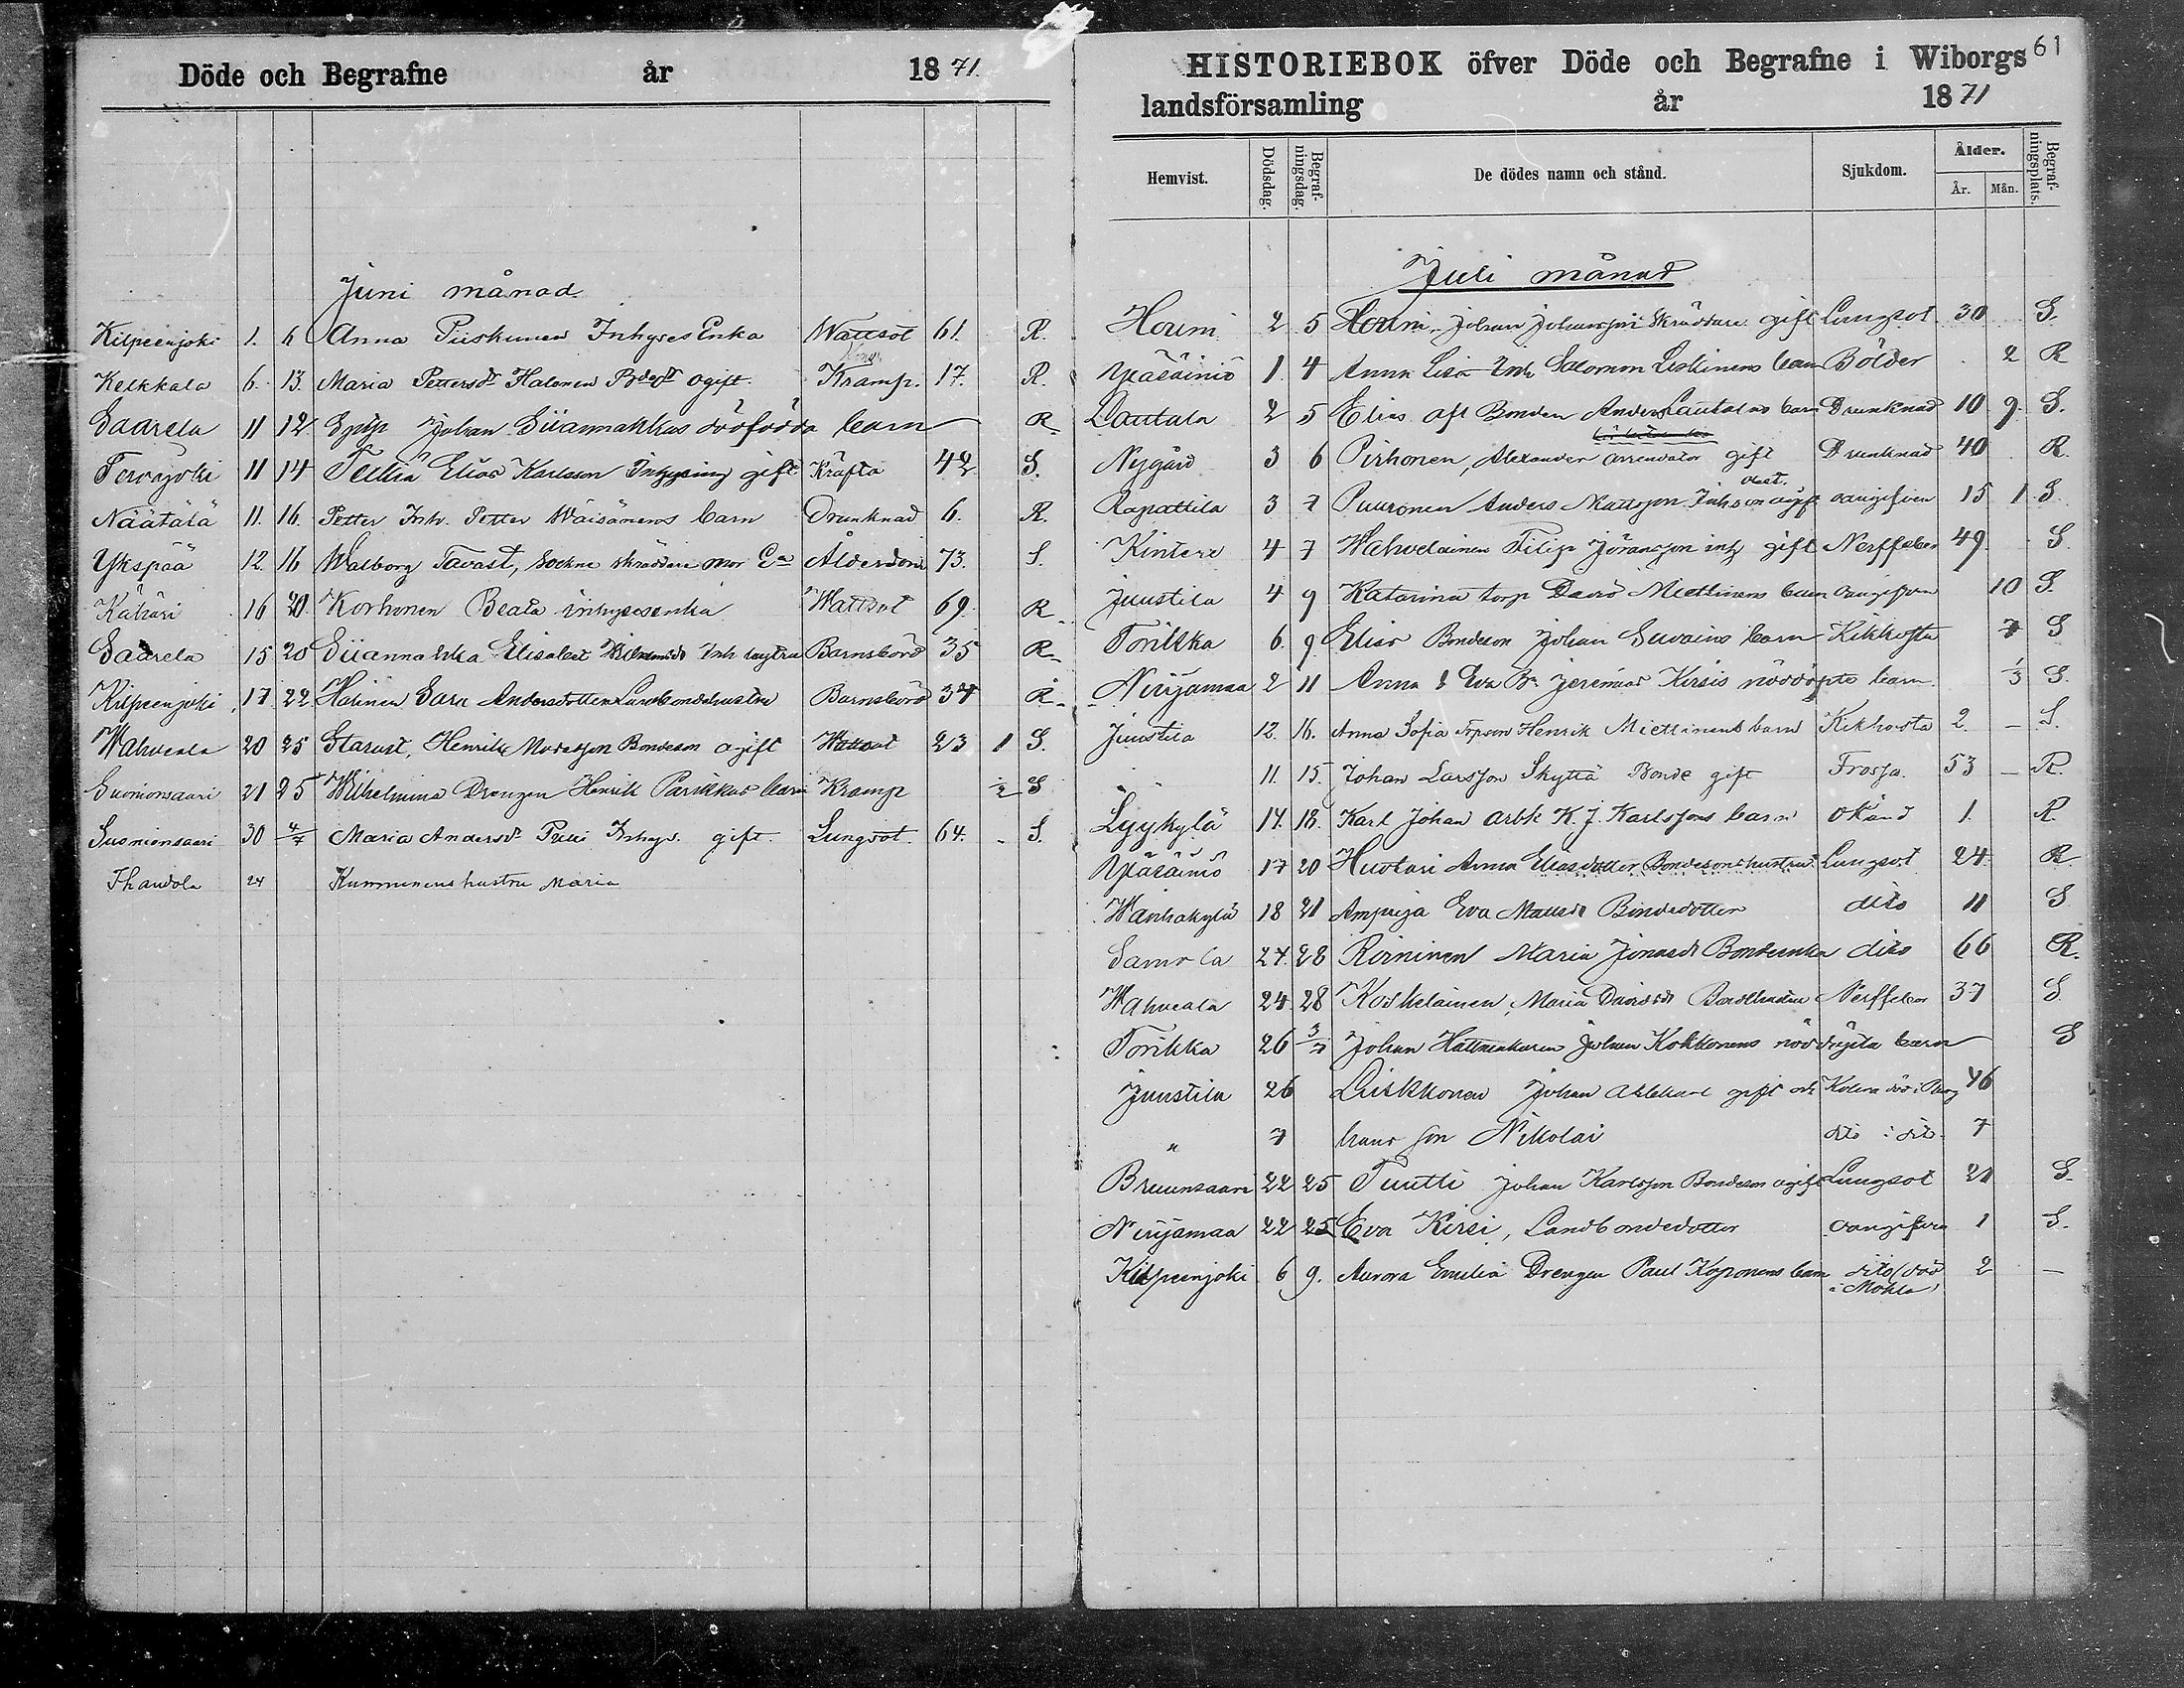 Döde och Begrafne år 1871.
Juni månad
Kilpeenjoki 1. 6 Anna Piiskunen Inhyses Enka Wattsot 61. R.
Kelkkala 6. 13. Maria Pettersdr Halonen ogift. Kramp. 17. R.
Saarela 11 12 Johan Siiannahkas dödfödda barn R
Tervajoki 11 14 Elias Karlsson Inhysing gift Kräfta 42 S.
Näätälä 11. 16. Petter Inh. Petter Wäisänens barn Drunknad 6. R.
Ykspää 12. 16 Walborg Tavast, Sockne skräddare mor Ålderdom 73. S.
Kähäri 16 20 Korhonen Beata inhysesenka Wattsot 69. R
Saarela 15 20 Siiannahka Elisabet Inh Barnsbörd 35 R
Kilpeenjoki 17 22 Halinen Sara Andersdotter Landbondehustru Barnsbörd 34 R
Wahveala 20 25 Starast, Henrik Bondeson ogift Wattsot 23 1 S.
Suonionsaari 21 25 Wilhelmina Drengen Henrik Parikkas barn Kramp ½ S
Suonionsaari 30 4/7 Maria Andersdr Inhys. gift. Lungsot. 64. - S.
Ihandola 24 Kumminens hustru Maria
HISTORIEBOK öfver Döde och Begrafne i Wiborgs 61
landsförsamling år 1871
Hemvist. Dödsdag. Begrafningsdag. De dödes namn och stånd. Sjukdom. Ålder. År. Mån. Begrafningsplats.
Juli månad
Houni 2 5 Houni, Johan Johansson Skräddare gift Lungsot 30 S.
Yläsäiniö 1. 4 Anna Lisa Inh Salomon Leskinens barn Bölder 2 R
Lauttala 2 5 Elias afl Bonden Anders Lauttalas barn Drunknad 10 9. S.
Nygård 3 6 Pirhonen, Alexander arrendator gift Drunknad 40 R.
Rapattila 3 7 Puuronen Anders Mattsson Inhson ogift oangifven 15 1. S.
Kintere 4 7 Wahvelainen Filip Göransson inh gift Nerffeber 49 S.
Juustila 4 9 Katarina torp David Miettinens barn oangifven 10 S.
Törikka 6. 9. Elias Bondeson Johan Suvains barn Kikhosta 7 S
Nirjamaa 2 11 Anna & Eva Br. Jeremias Kirsis nöddöpte barn 1/3 S.
Juustila 12. 16. Anna Sofia Trpson Henrik Miettinens barn Kikhosta 2. - S.
" 11. 15. Johan Larsson Skyttä Bonde gift Frossa. 53 - R.
Lyykylä 14. 18. Karl Johan arbk K. J. Karlssons barn okänd 1. R.
Yläsäiniö 17 20 Huotari Anna Eliasdotter Bondesonshustru Lungsot 24 R
Wanhakylä 18 21 Ampuja Eva Mattsdr Bondedotter dito 11 S
Samola 24. 28 Roininen Maria Jonasdr Bondenka dito 66 R.
Wahveala 24 28 Koskelainen, Maria Davidsdr Nerffeber 37 S
Törikka 26 3/7 Johan Hattmakaren Johan Kokkonens nöddöpta barn S
Juustila 26 Liukkonen Johan gift och Kolera död i 46
" 7 hans son Nikolai dito i dito 7
Bruunsaari 22 25 Tuutti Johan Karlsson Bondeson ogift Lungsot 21 S.
Nirjamaa 22 25 Eva Kirsi, Landbondedotter oangifven 1 S.
Kilpeenjoki 6 9. Aurora Emilia Drengen Paul Koponens barn dito (död 2 -
i Mohla)